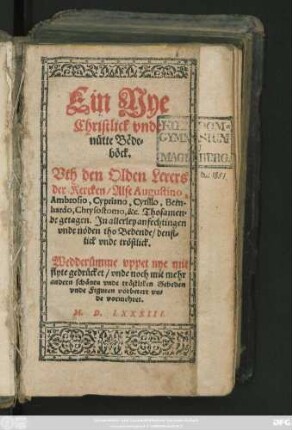 Ein Nye
Christlick vnde
nütte Bëde-
böck.
Vth den Olden Lerers
der Kercken / Alse Augustino,
Ambrosio, Cypriano, Cyrillo, Bern-
hardo, Chrysostomo, &c. Thosamen-
de getagen. In allerley anfechtingen
vnde nöden tho Bedende / denst-
lick vnde tröstlick.
Wedderümme vppet nye mit
flyte gedrücket / vnde noch mit mehr
andern schönen vnde tröstliken Gebeden
vnde Figuren vorbetert vn-
de vormehret.
M. D. LXXXIII.
DOM-
GYMNASIUM
MAGDEBURG.